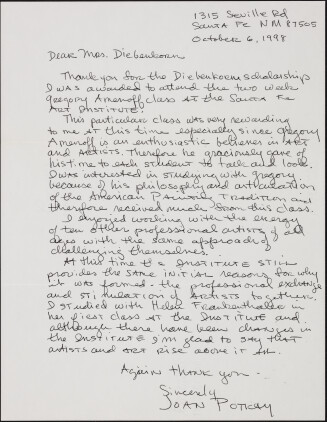 1315 Seville Rd
Santa Fe NM 87505
October 6, 1998
Dear Mrs. Diebenkorn
Thank you for the Diebenkorn scholarship
I was awarded to attend the two week
Gregory Amenoff class at the Santa Fe
Art Institute.
This particular class was very rewarding
to me at this time especially since Gregory
Amenoff is an enthusiastic believer in Art
and Artists. Therefore he graciously gave of
his time to each student to talk and look.
I was interested in studying with Gregory
because of his philosophy and articulation
of the American Painting Tradition and
therefore received much from this class.
I enjoyed working with the energy
of ten other professional artists of all
ages with the same approach of
challenging themselves.
At this time the Institute still
provides the same initial reasons for why
it was formed - the professional exchange
and stimulation of artists together.
I studied with Helen Frankenthaler in
her first class at the Institute and
although there have been changes in
the Institute I'm glad to say that
artists and art rise above it all.
Again thank you -
Sincerely
Joan